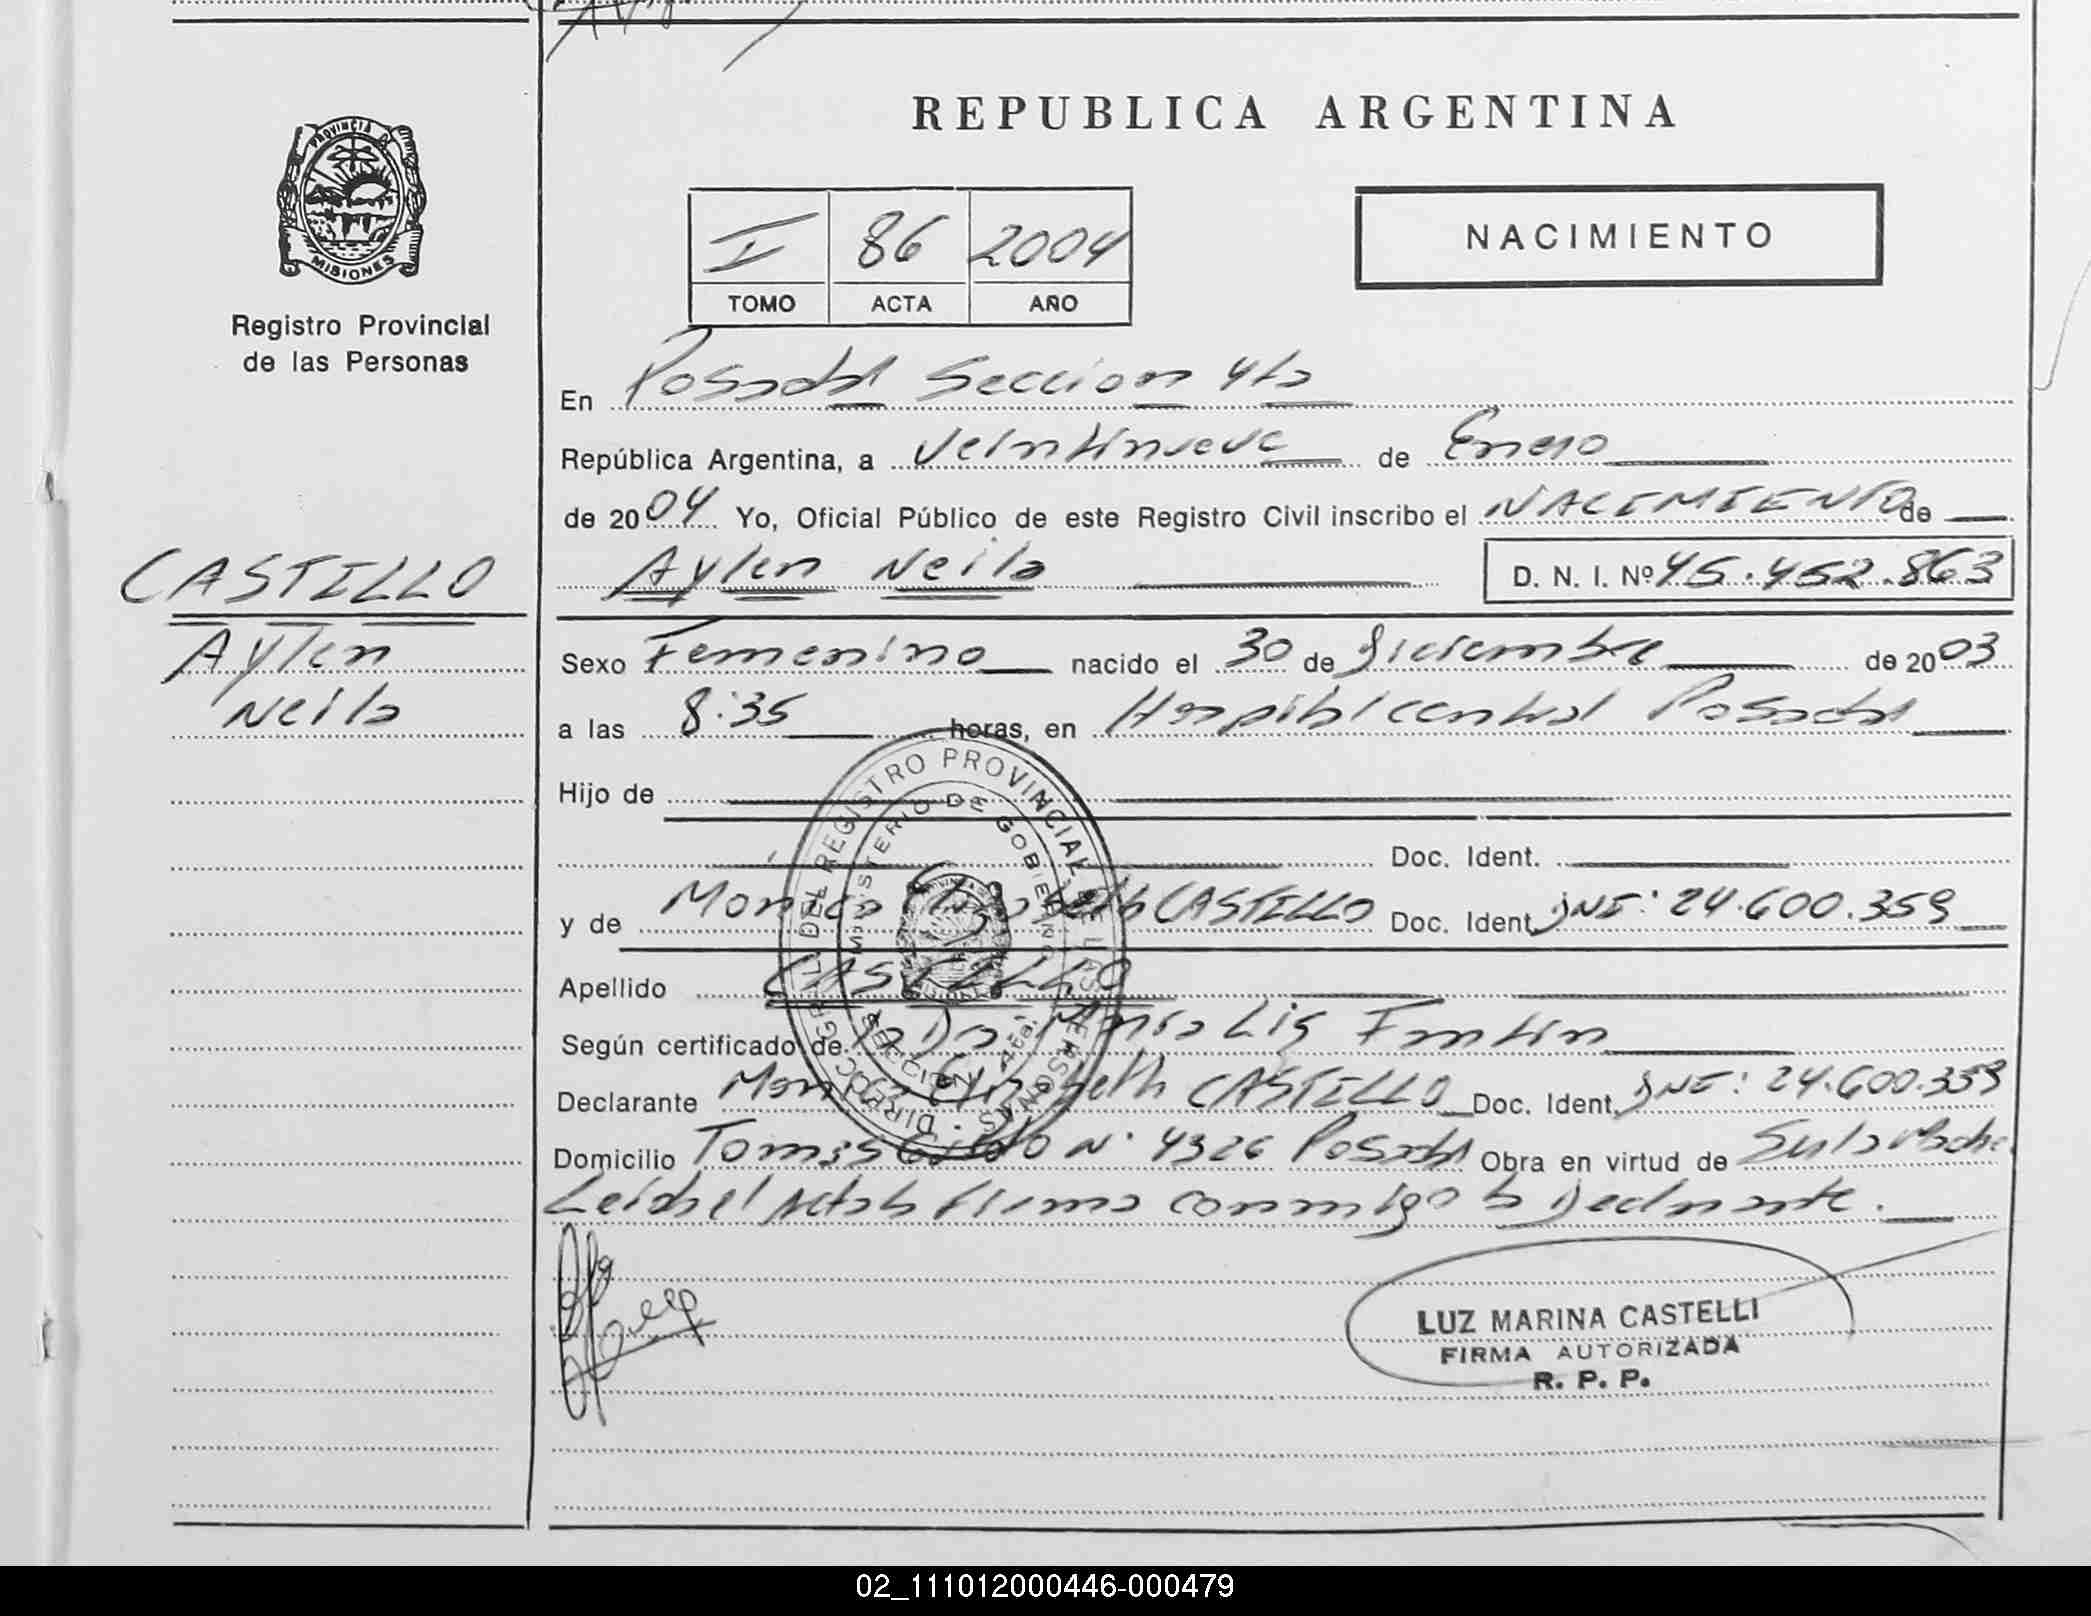 PROVINCIA DE
MISIONES
Registro Provincial
de las Personas
CASTILLO
Aylen
Neila
REPUBLICA ARGENTINA
I 86 2004
TOMO ACTA AÑO
NACIMIENTO
En Posadas Seccion 4ta
República Argentina, a Veintinueve de Enero
de 2004 Yo, Oficial Público de este Registro Civil inscribo el NACIMIENTO de
Aylen Neila D. N. I. Nº 45.452.863
Sexo Femenino nacido el 30 de Diciembre de 2003
a las 8:35 horas, en Hospital central Posadas
Hijo de
Doc. Ident.
y de Monica Elizabeth CASTILLO Doc. Ident. DNI: 24.600.359
Apellido CASTILLO
Según certificado de la Dra Maria Lis
Declarante Monica Elizabeth CASTILLO Doc. Ident. DNI: 24.600.359
Domicilio Tomas Guido Nº 4326 Posadas Obra en virtud de Su la madre
Leida el Acta la firma conmigo la Declarante.
DIRECC. GRAL. DEL REGISTRO PROVINCIAL DE LAS PERSONAS
MINISTERIO DE GOBIERNO
LUZ MARINA CASTELLI
FIRMA AUTORIZADA
R. P. P.
02_111012000446-000479